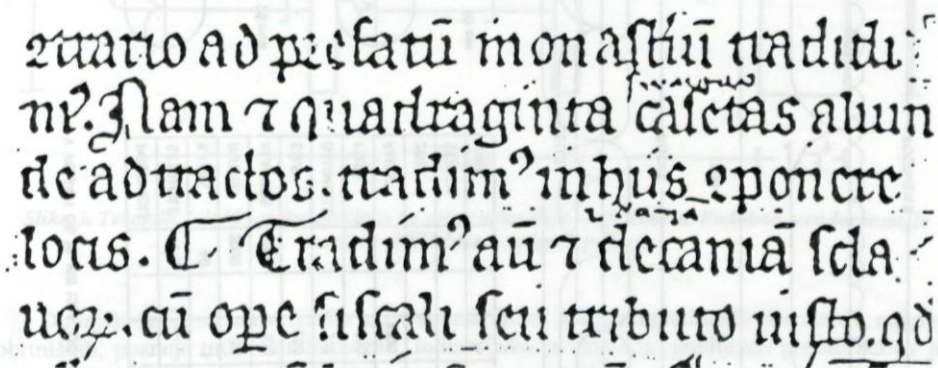 ꝯtrario ad prefatū monastiū tradidi
mꝰ. Nam ⁊ quadraginta casatas aliun
de adtractos tradimꝰ in hiis ꝯponere
locis. ¶ Tradimꝰ aū ⁊ decaniā scla
uoꝝ. cū oꝑe fiscali seu tributo iusto. qd